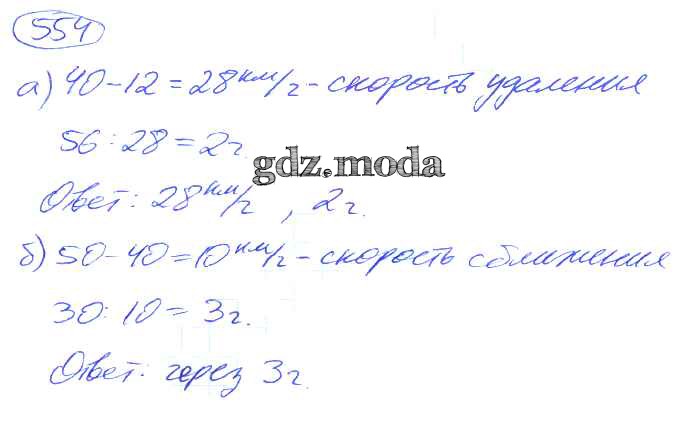 554
а) 40-12=28 км/ч - скорость удаления
56:28=2ч.
gdz.moda
Ответ: 28 км/ч, 2ч.
б) 50-40=10 км/ч - скорость сближения
30:10=3ч.
Ответ: через 3ч.